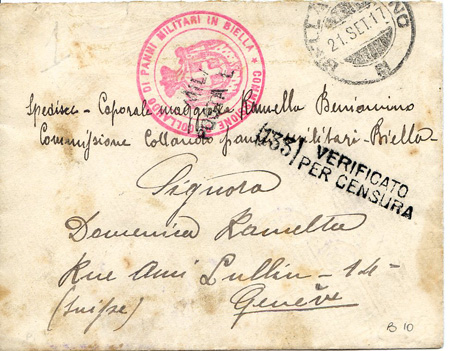 COMMISSIONE COLLAUDO DI PANNI MILITARI IN BIELLA
21.SET.17
Spedisce - Caporale maggiore Ramella Beniamino
Commissione Collaudo panni militari - Biella -
(33) VERIFICATO
PER CENSURA
Signora
Domenica Ramella
Rue Ami Lullin - 14 -
(Suisse) Genève
B 10